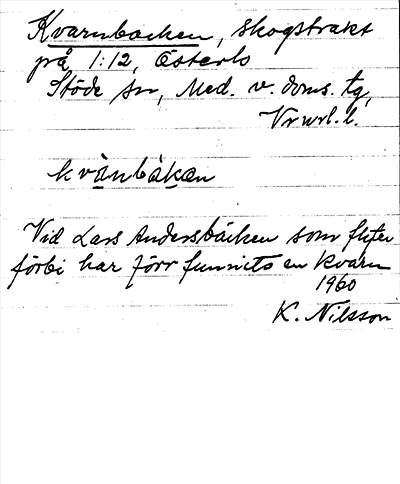 Kvarnbacken, skogstrakt
på 1:12, Österlo
Stöde sn, Med. v. doms. tg,
Vrwrl. l.
kvànbàkan
Vid Lars Andersbäcken som flyter
förbi har förr funnits en kvarn
1960
K. Nilsson